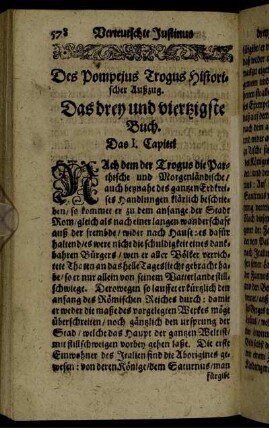 578 Verteutschte Justinus
Des Pompejus Trogus Histori-
scher Außzug.
Das drey und viertzigste
Buch.
Das I. Capitel
NAch dem der Trogus die Par-
thische und Morgenländische/
auch beynahe des gantzen Erdkrei-
ses Handlungen klärlich beschrie-
ben/ so kommet er zu dem anfange der Stadt
Rom/ gleich als nach einer langen wanderschafft
auß der frembde/ wider nach Hause: es dafür
haltend/ es were nicht die schuldigkeit eines danck-
bahren Bürgers/ wen er aller Völker verrich-
tete Thaten an das helle Tages licht gebracht ha-
be/ so er nur allein von seinem Vaterlande still-
schwiege. Derowegen so lauffet er kürtzlich den
anfang des Römischen Reiches durch: damit
er weder die maße des vorgelegten Werkes möge
überschreiten/ noch gäntzlich den ursprung der
Stad/ welche das Haupt der gantzen Welt ist/
mit stillschweigen vorbey gehen laße. Die erste
Einwohner des Italien sind die Aborigines ge-
wesen: von deren Könige/ dem Saturnus/ man
fürgibt